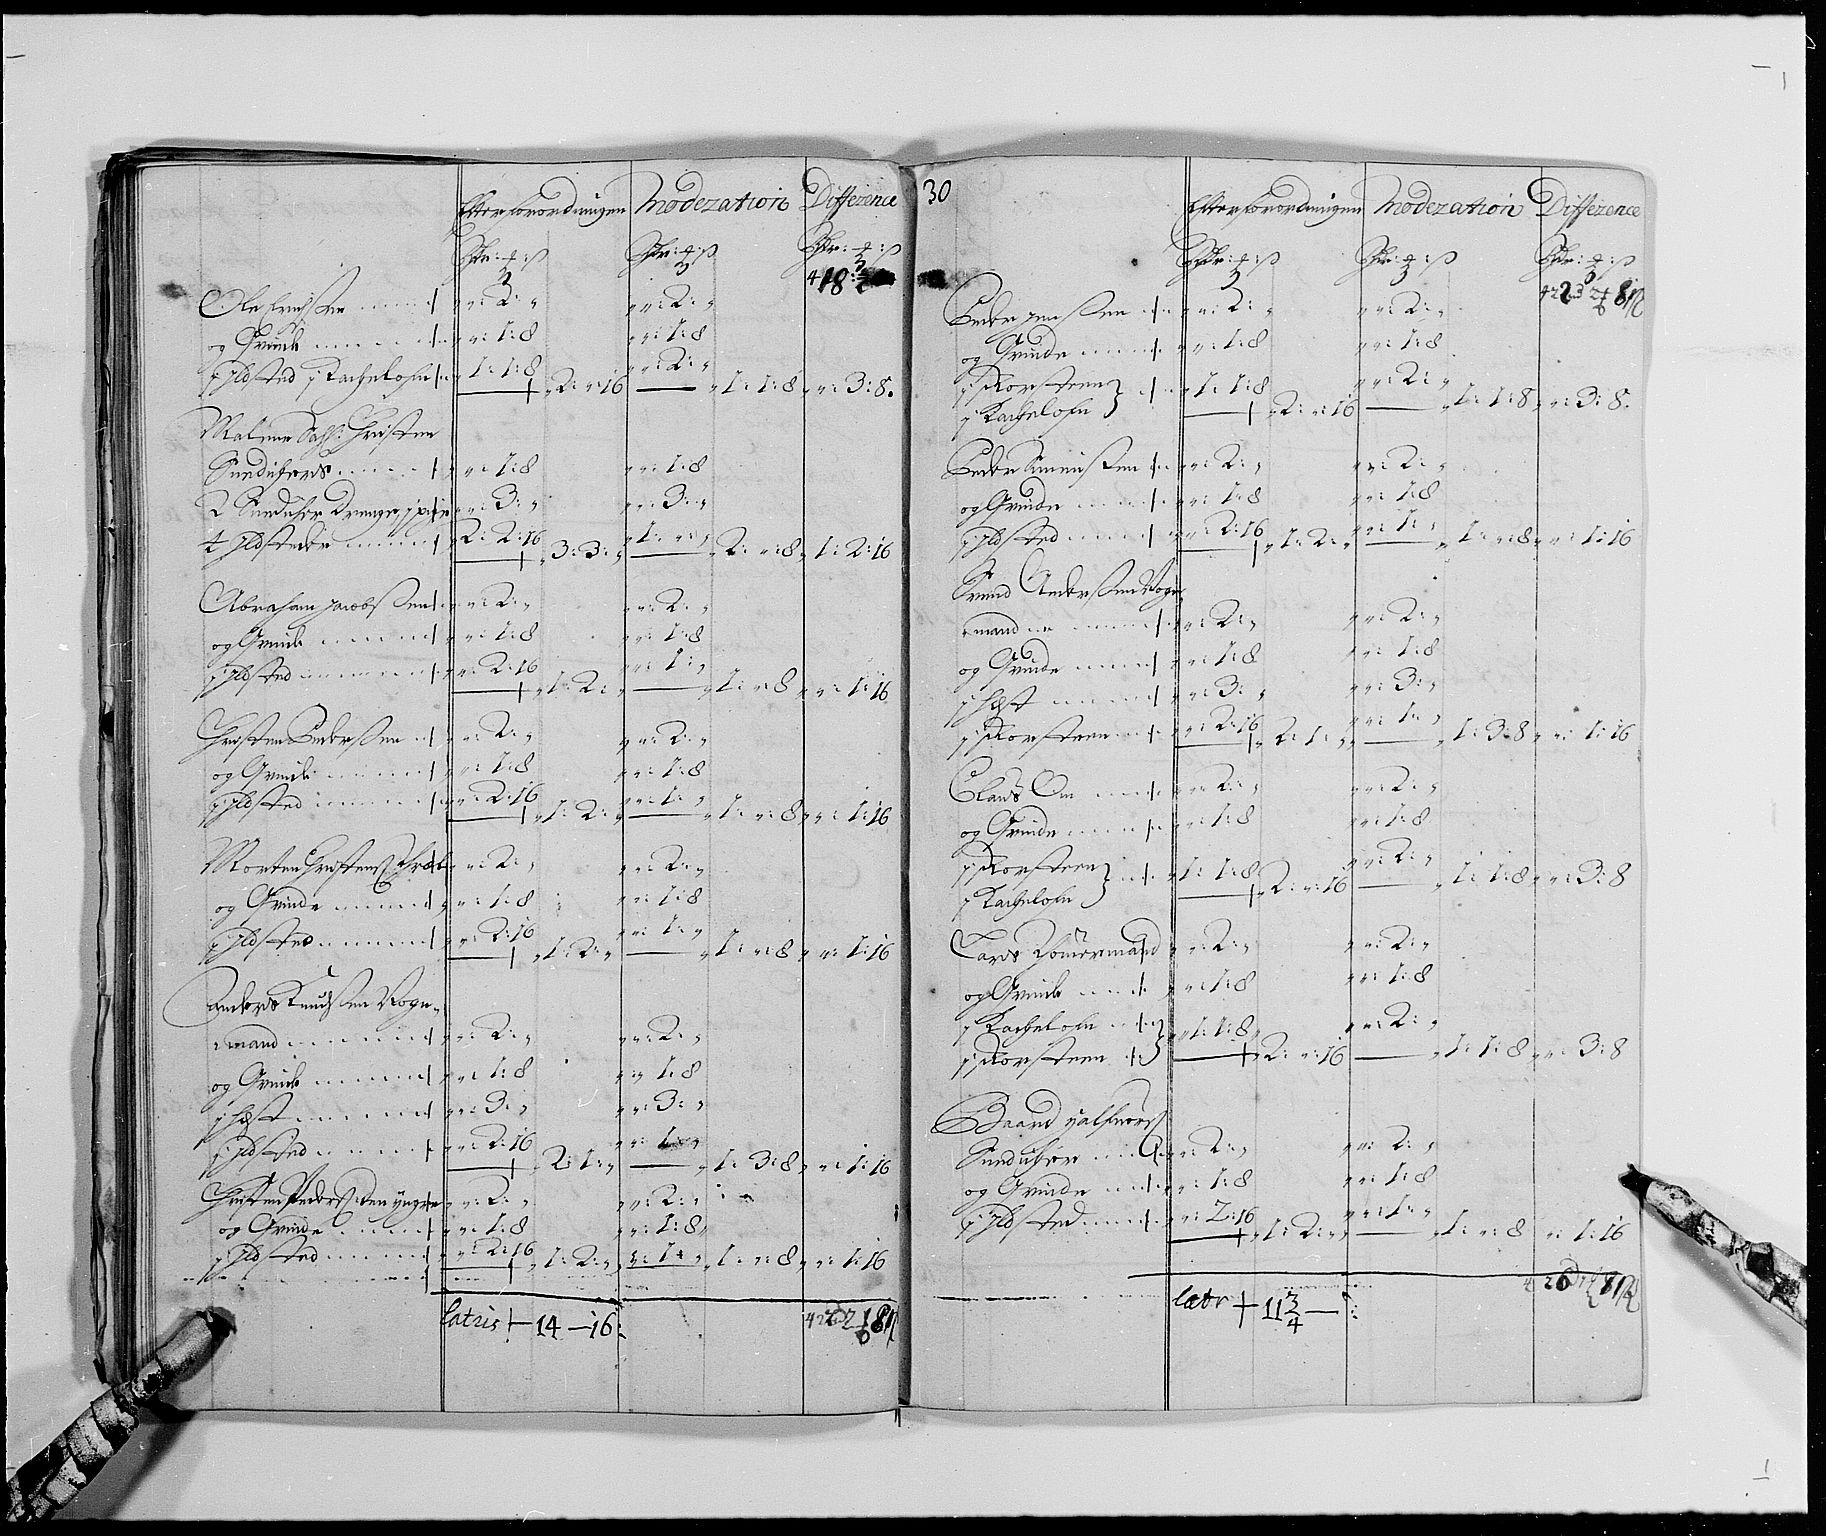 Efter forordningen Moderation Difference
Ole Erichsen „ „: 2: „ „ „: 2: „
og Qvinde „ „: 1: 8 „ „: 1: 8
j Ildsted j Kachelofn „ 1: 1: 8 „ „: 2: „
„ 2: „: 16 „ 1: 1: 8 „ „: 3: 8.
Malene Sahl: Christen
Snedichers „ „: 1: 8 „ „: 1: 8
2 Snedicher Drenge „ „: 3: „ „ „: 3: „
4 Ildsteder „ 2: 2: 16 „ 1: „: „
„ 3: 3: „ „ 2: „: 8 „ 1: 2: 16
Abraham Jacobsen „ „: 2: „ „ „: 2: „
og Qvinde „ „: 1: 8 „ „: 1: 8
j Ildsted „ „: 2: 16 „ „: 1: „
„ 1: 2: „ „ 1: „: 8 „ „: 1: 16
Christen Pedersen „ „: 2: „ „ „: 2: „
og Qvinde „ „: 1: 8 „ „: 1: 8
j Ildsted „ „: 2: 16 „ „: 1: „
„ 1: 2: „ „ 1: „: 8 „ „: 1: 16
Morten Christens: „ „: 2: „ „ „: 2: „
og Qvinde „ „: 1: 8 „ „: 1: 8
j Ildsted „ „: 2: 16 „ „: 1: „
„ 1: 2: „ „ 1: „: 8 „ „: 1: 16
Anders Knudsen Vogn-
mand „ „: 2: „ „ „: 2: „
og Qvinde „ „: 1: 8 „ „: 1: 8
j Hest „ „: 3: „ „ „: 3: „
j Ildsted „ „: 2: 16 „ „: 1: „
„ 2: 1: „ „ 1: 3: 8 „ „: 1: 16
Christen Peders: den yngre „ „: 2: „ „ „: 2: „
og Qvinde „ „: 1: 8 „ „: 1: 8
j Ildsted „ „: 2: 16 „ „: 1: „
„ 1: 2: „ „ 1: „: 8 „ „: 1: 16
Latris 14 — 16:
30
Efter forordningen Moderation Difference
Peder Jensen „ „: 2: „ „ „: 2: „
og Qvinde „ „: 1: 8 „ „: 1: 8
j Skorsteen
j Kachelofn „ 1: 1: 8 „ „: 2: „
„ 2: „: 16 „ 1: 1: 8 „ „: 3: 8.
Peder Simensen „ „: 2: „ „ „: 2: „
og Qvinde „ „: 1: 8 „ „: 1: 8
j Ildsted „ „: 2: 16 „ „: 1: „
„ 1: 2: „ „ 1: „: 8 „ „: 1: 16
Svend Andersen Vogn-
mand „ „: 2: „ „ „: 2: „
og Qvinde „ „: 1: 8 „ „: 1: 8
j Hest „ „: 3: „ „ „: 3: „
j Skorsteen „ „: 2: 16 „ „: 1: „
„ 2: 1: „ „ 1: 3: 8 „ „: 1: 16
Claus „ „: 2: „ „ „: 2: „
og Qvinde „ „: 1: 8 „ „: 1: 8
j Skorsteen
j Kachelofn „ 1: 1: 8 „ „: 2: „
„ 2: „: 16 „ 1: 1: 8 „ „: 3: 8
Lars Tömermand „ „: 2: „ „ „: 2: „
og Qvinde „ „: 1: 8 „ „: 1: 8
j Kachelofn
j Skorsteen „ 1: 1: 8 „ „: 2: „
„ 2: „: 16 „ 1: 1: 8 „ „: 3: 8
Baard Halfvors:
Snedicher „ „: 2: „ „ „: 2: „
og Qvinde „ „: 1: 8 „ „: 1: 8
j Ildsted „ „: 2: 16 „ „: 1: „
„ 1: 2: „ „ 1: „: 8 „ „: 1: 16
Latr 11 3/4 —